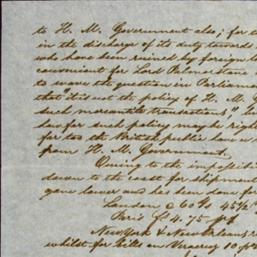 to H. M. Government also; for t
in the discharge of its duty towards
who have been ruined by foreign l
convenient for Lord Palmerstone
to wave the question in Parliam
that "it is not the policy of H. M. G
such mercantile transactions"
how far such policy may be right
for too the British public have a
from H. M. Government.
Owing to the impossibili
down to the coast for shipment
gone lower and has been done for
London @ 60 d/s 45½
Paris 4.75
New York & New Orleans
whilst for bills on Veracruz 10 p